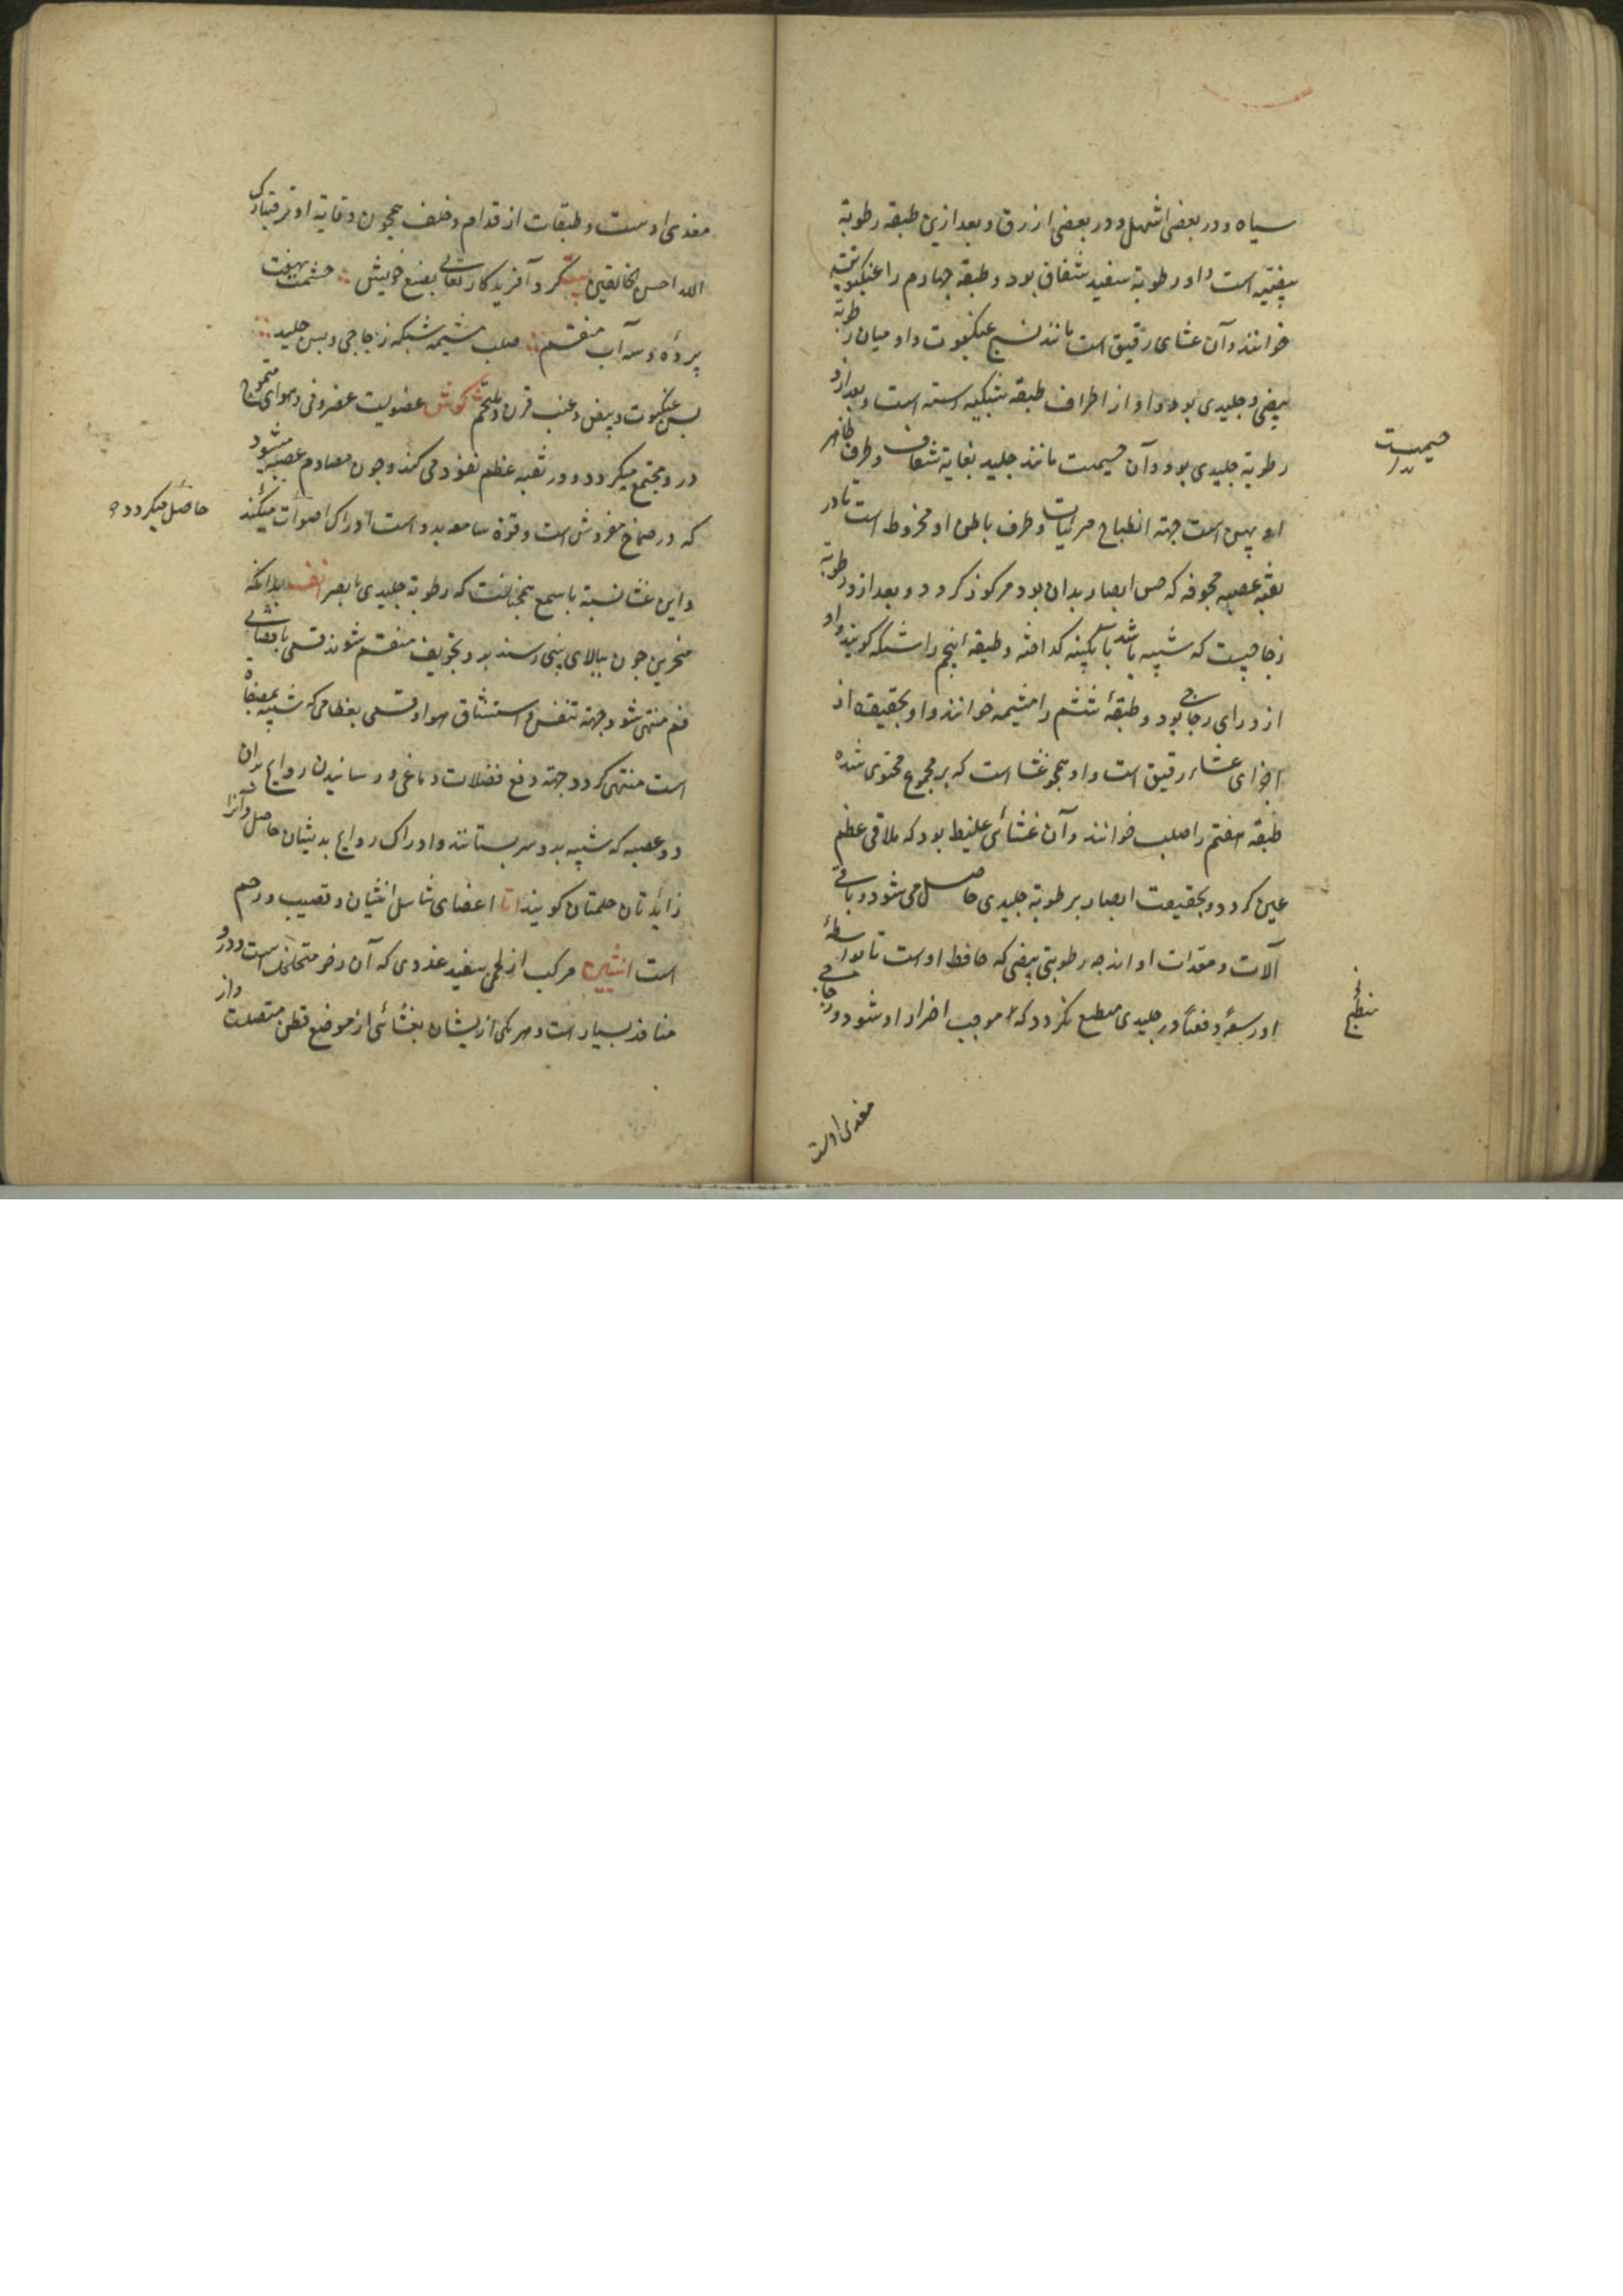 سیاه و در بعضی اشهل و در بعضی ازرق و بعد ازین طبقه رطوبة
بیضیه است و او رطوبة سفید شفاف بود و طبقه چهارم را عنکبوتیه
خوانند و آن غشای رقیق است مانند نسج عنکبوت و او میان رطوبة
بیضی و جلیدی بود و او از اطراف طبقه شبکیه رسته است و بعد ازو
رطوبة جلیدی بود و آن جسیمست مانند جلید بغایة شفاف و طرف ظاهر
او پهن است جهة انطباع مرئیات و طرف باطن او مخروط است تا در
ثقبه عصبه مجوفه که حس ابصار بدان بود مرکوز کردد و بعد ازو رطوبة
زجاجیست که شبیه باشد بآبکینه کداخته و طبقه پنجم را شبکه کویند و او
از ورای زجاجی بود و طبقهٔ ششم را مشیمه خوانند و او بحقیقت از
اجزای غشاء رقیق است و او همچو غشا است که بر مجموع محتوی شده
طبقه هفتم را صلب خوانند و آن غشائی غلیظ بود که ملاقی عظم
عین کردد و بحقیقت ابصار برطوبة جلیدی حاصل می شود و باقی
آلات و معدات او اند چه رطوبتی بیضی که حافظ اوست تا بواسطهٔ
او دفعتاً در جلیدی منطبع نکردد که موجب اضرار او شود و زجاجی
جسیمست
منطبع
مغذی اوست
مغذی اوست و طبقات از قدام و خلف همچون وقایة او فتبارک
الله احسن الخالقین بیت کرد آفریدکار تعالی بصنع خویش چشمت بهفت
پرده و سه آب منقسم صلب مشیمه شبکه زجاجی و پس جلید
پس عنکبوت و بیض و عنب قرن و ملتحم کوش عضویست غضروفی و هوای متموج
درو مجتمع میکردد و در ثقبه عظم نفوذ می کند و چون مصادم عصبه میشود
که در صماخ مفروش است و قوة سامعه بدو است ادراک اصوات میکند
حاصل میکردد و
و این غشا نسبة با سمع همچنانست که رطوبة جلیدی با بصر انف بدانکه
منخرین چون ببالای بینی رسند بدو تجویف منقسم شوند قسمی باقصای
فم منتهی شود جهة تنفس و استنشاق هوا و قسمی بعظامی که شبیه بمصفاة
است منتهی کردد جهة دفع فضلات دماغی و رسانیدن روایح بدان
دو عصبه که شبیه بدو سر پستانند و ادراک روایح بدیشان حاصل و آنرا
زایدتان حلمتان کویند اما اعضای تناسل انثیان و قضیب و رحم
است انثیین مرکب از لحمی سفید غددی که آن رخو متخلخل است و درو
منافذ بسیار است و هر یکی از یشان بغشائی از موضع قطن متصلست و از